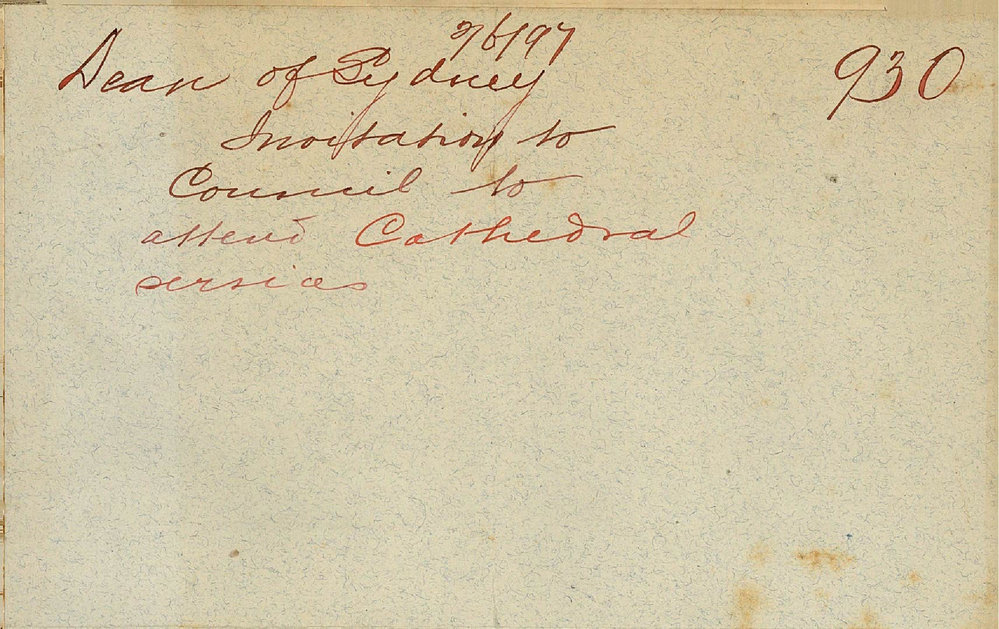 2/6/97
Dean of Sydney 930
Invitation to
Council to
attend Cathedral
services